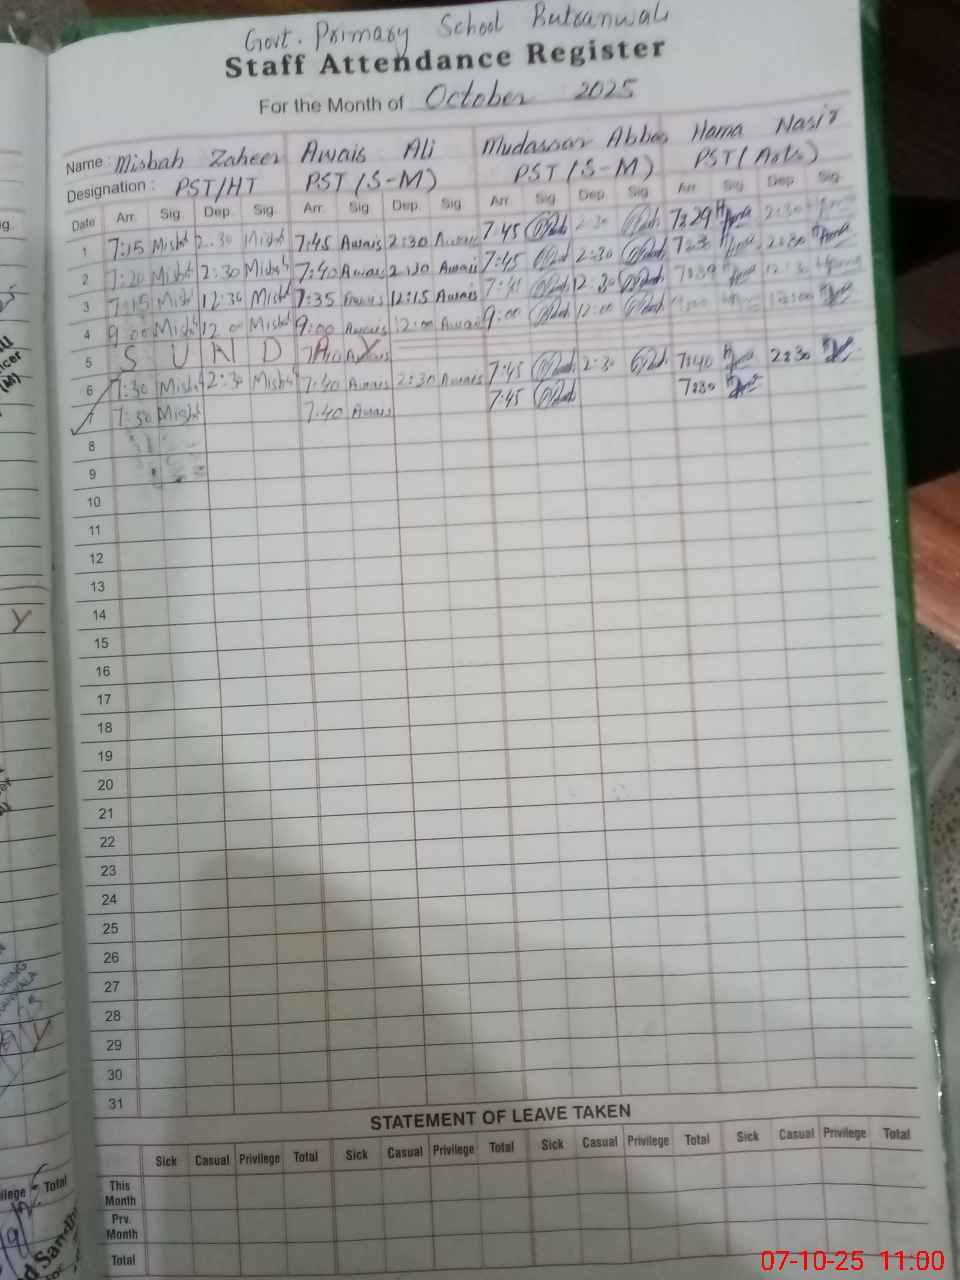 Govt. Primary School Butranwali
Staff Attendance Register
For the Month of October 2025
Name: Misbah Zaheer Awais Ali Mudassar Abbas Hama Nasir
Designation: PST/HT PST (S-M) PST (S-M) PST (Arts)
Date Arr. Sig. Dep. Sig. Arr. Sig. Dep. Sig. Arr. Sig. Dep. Sig. Arr. Sig. Dep. Sig.
1 7:15 Misbah 2:30 Misbah 7:45 Awais 2:30 Awais 7:45 2:30 7:29 2:30
2 7:20 Misbah 2:30 Misbah 7:40 Awais 2:30 Awais 7:45 2:30 2:30
3 7:15 Misbah 12:30 Misbah 7:35 Awais 12:15 Awais 12:30 12:30
4 9:00 Misbah 12:00 Misbah 9:00 Awais 12:00 Awais 9:00 12:00
5 S U N D A Y
6 7:30 Misbah 2:30 Misbah 7:40 Awais 2:30 Awais 7:45 2:30 7:40 2:30
7 7:30 Misbah 7:40 Awais 7:45 7:30
8
9
10
11
12
13
14
15
16
17
18
19
20
21
22
23
24
25
26
27
28
29
30
31
STATEMENT OF LEAVE TAKEN
Sick Casual Privilege Total Sick Casual Privilege Total Sick Casual Privilege Total Sick Casual Privilege Total
This Month
Prv. Month
Total
07-10-25 11:00